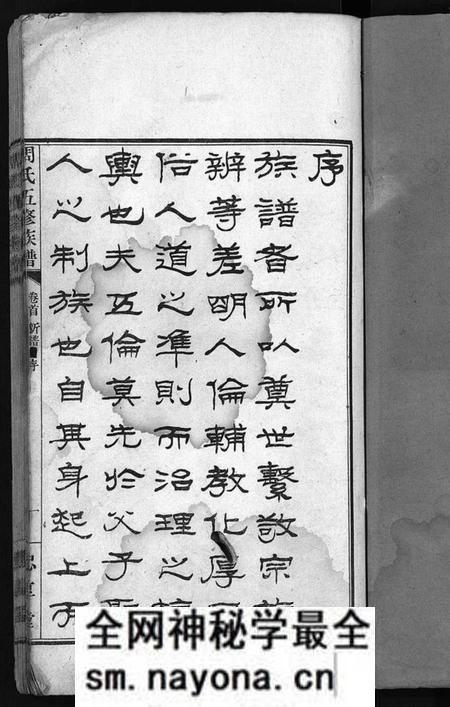 序
族譜者所以奠世繫敦宗族
辨等差明人倫輔教化厚
俗人道之準則而治理之
輿也夫五倫莫先於父子
人之制族也自其身起上
周氏五修族譜
卷首 新譜 序
全网神秘学最全
sm.nayona.cn